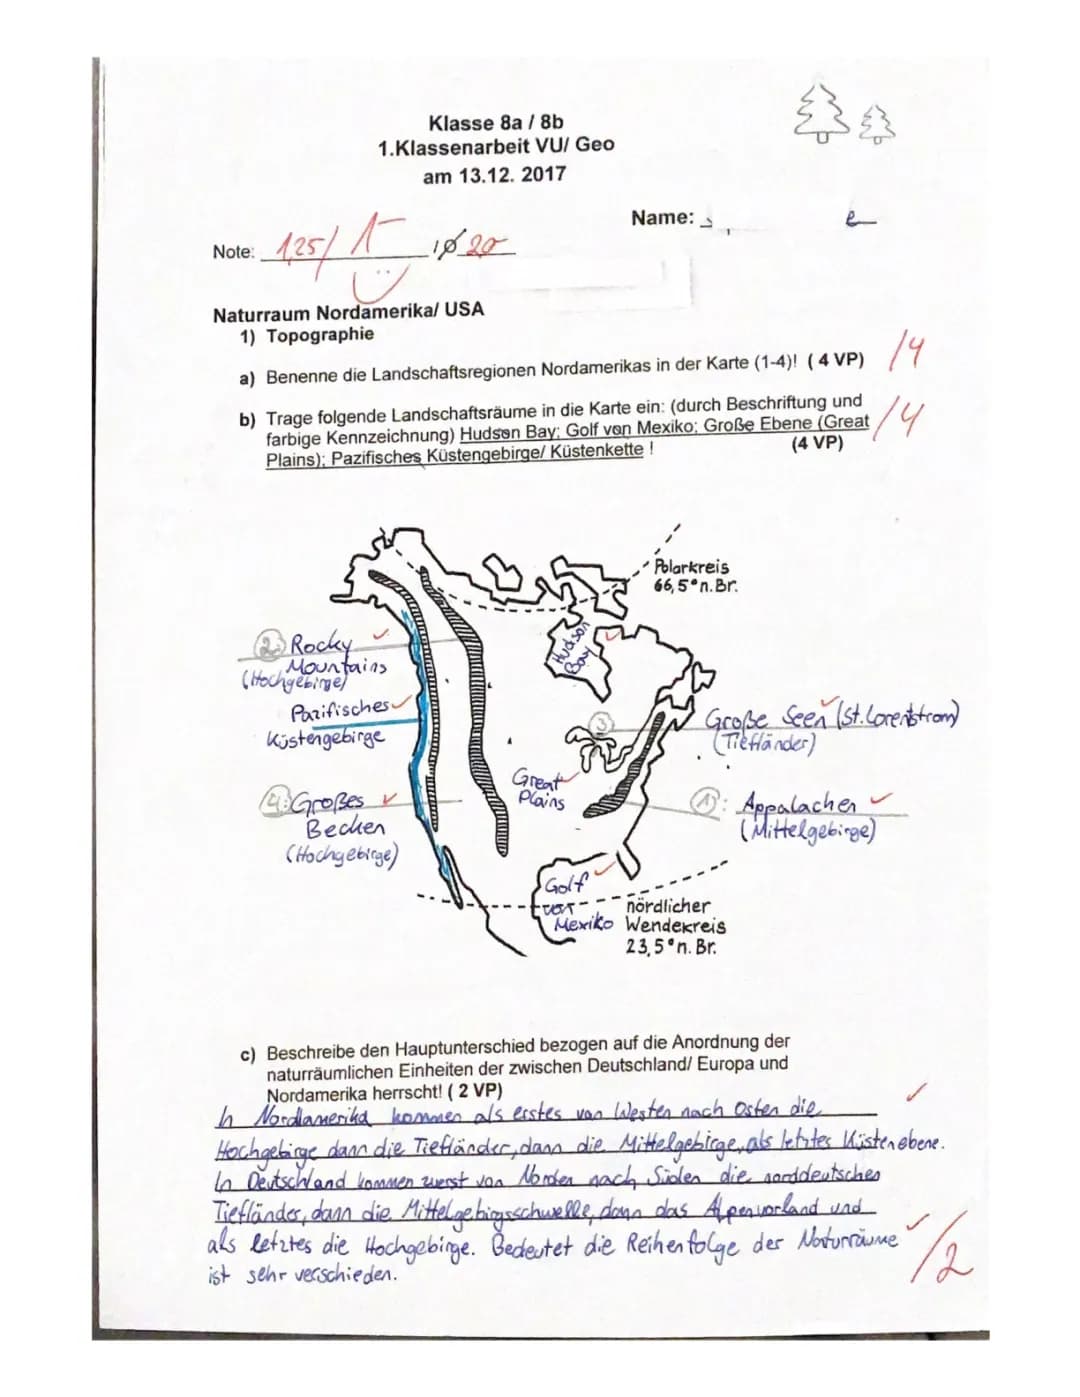 Klasse 8a / 8b
1.Klassenarbeit VU/ Geo
am 13.12. 2017
Name:
Note: 1,25/ 1- 20
Naturraum Nordamerika/ USA
1) Topographie
a) Benenne die Landschaftsregionen Nordamerikas in der Karte (1-4)! ( 4 VP) /4
b) Trage folgende Landschaftsräume in die Karte ein: (durch Beschriftung und
farbige Kennzeichnung) Hudson Bay; Golf von Mexiko; Große Ebene (Great /4
Plains); Pazifisches Küstengebirge/ Küstenkette ! (4 VP)
Polarkreis
66,5°n.Br.
Hudson
Bay
2. Rocky
Mountains
(Hochgebirge)
Pazifisches
Küstengebirge
3
Große Seen (St. Lorentstrom)
(Tiefländer)
Great
Plains
4: Großes
Becken
(Hochgebirge)
1: Appalachen
(Mittelgebirge)
Golf
von
Mexiko
nördlicher
Wendekreis
23,5°n. Br.
c) Beschreibe den Hauptunterschied bezogen auf die Anordnung der
naturräumlichen Einheiten der zwischen Deutschland/ Europa und
Nordamerika herrscht! ( 2 VP)
In Nordamerika kommen als erstes von Westen nach Osten die
Hochgebirge dann die Tiefländer, dann die Mittelgebirge, als letztes Küstenebene.
In Deutschland kommen zuerst von Norden nach Süden die norddeutschen
Tiefländer, dann die Mittelgebirgsschwelle, dann das Alpenvorland und
als letztes die Hochgebirge. Bedeutet die Reihenfolge der Naturräume
ist sehr verschieden. /2